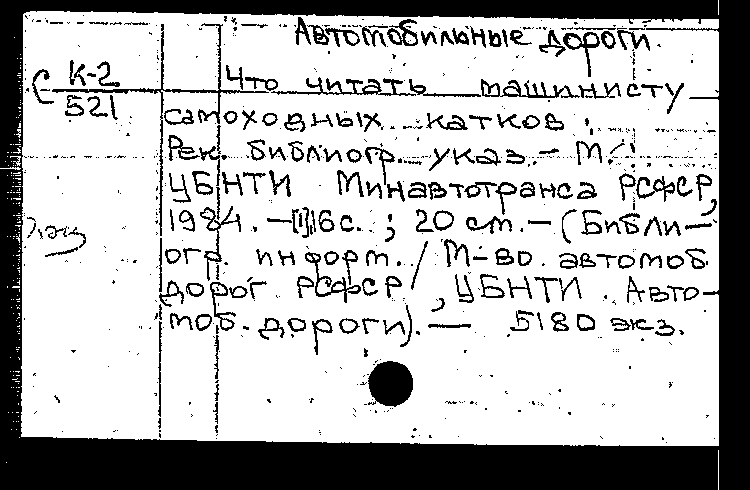 Автомобильные дороги.
С К-2
521
Что читать машинисту
самоходных катков:
Рек. библиогр. указ. – М.:
ЦБНТИ Минавтотранса РСФСР,
1984. – [1]16 с. ; 20 см. – (Библи-
огр. информ. / М-во. автомоб.
дорог РСФСР, ЦБНТИ. Авто-
моб. дороги). — 5180 экз.